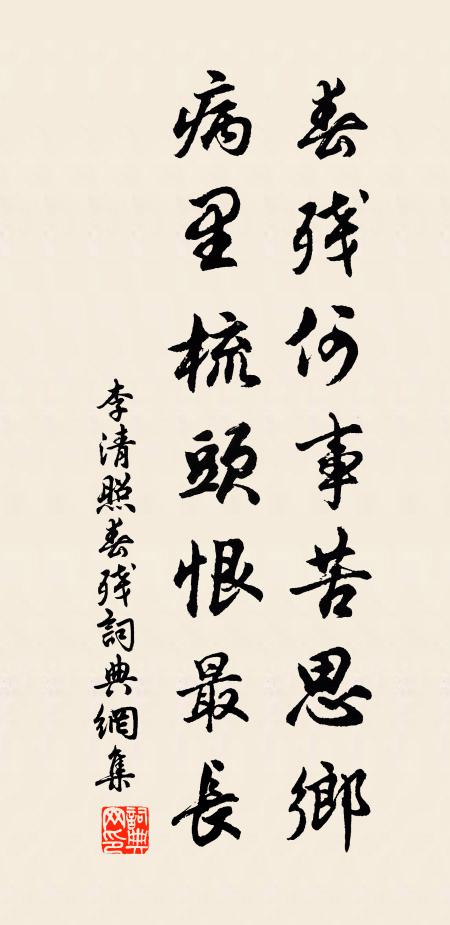 春殘何事苦思鄉
病里梳頭恨最長
李清照春残詞典網集
詞典网印